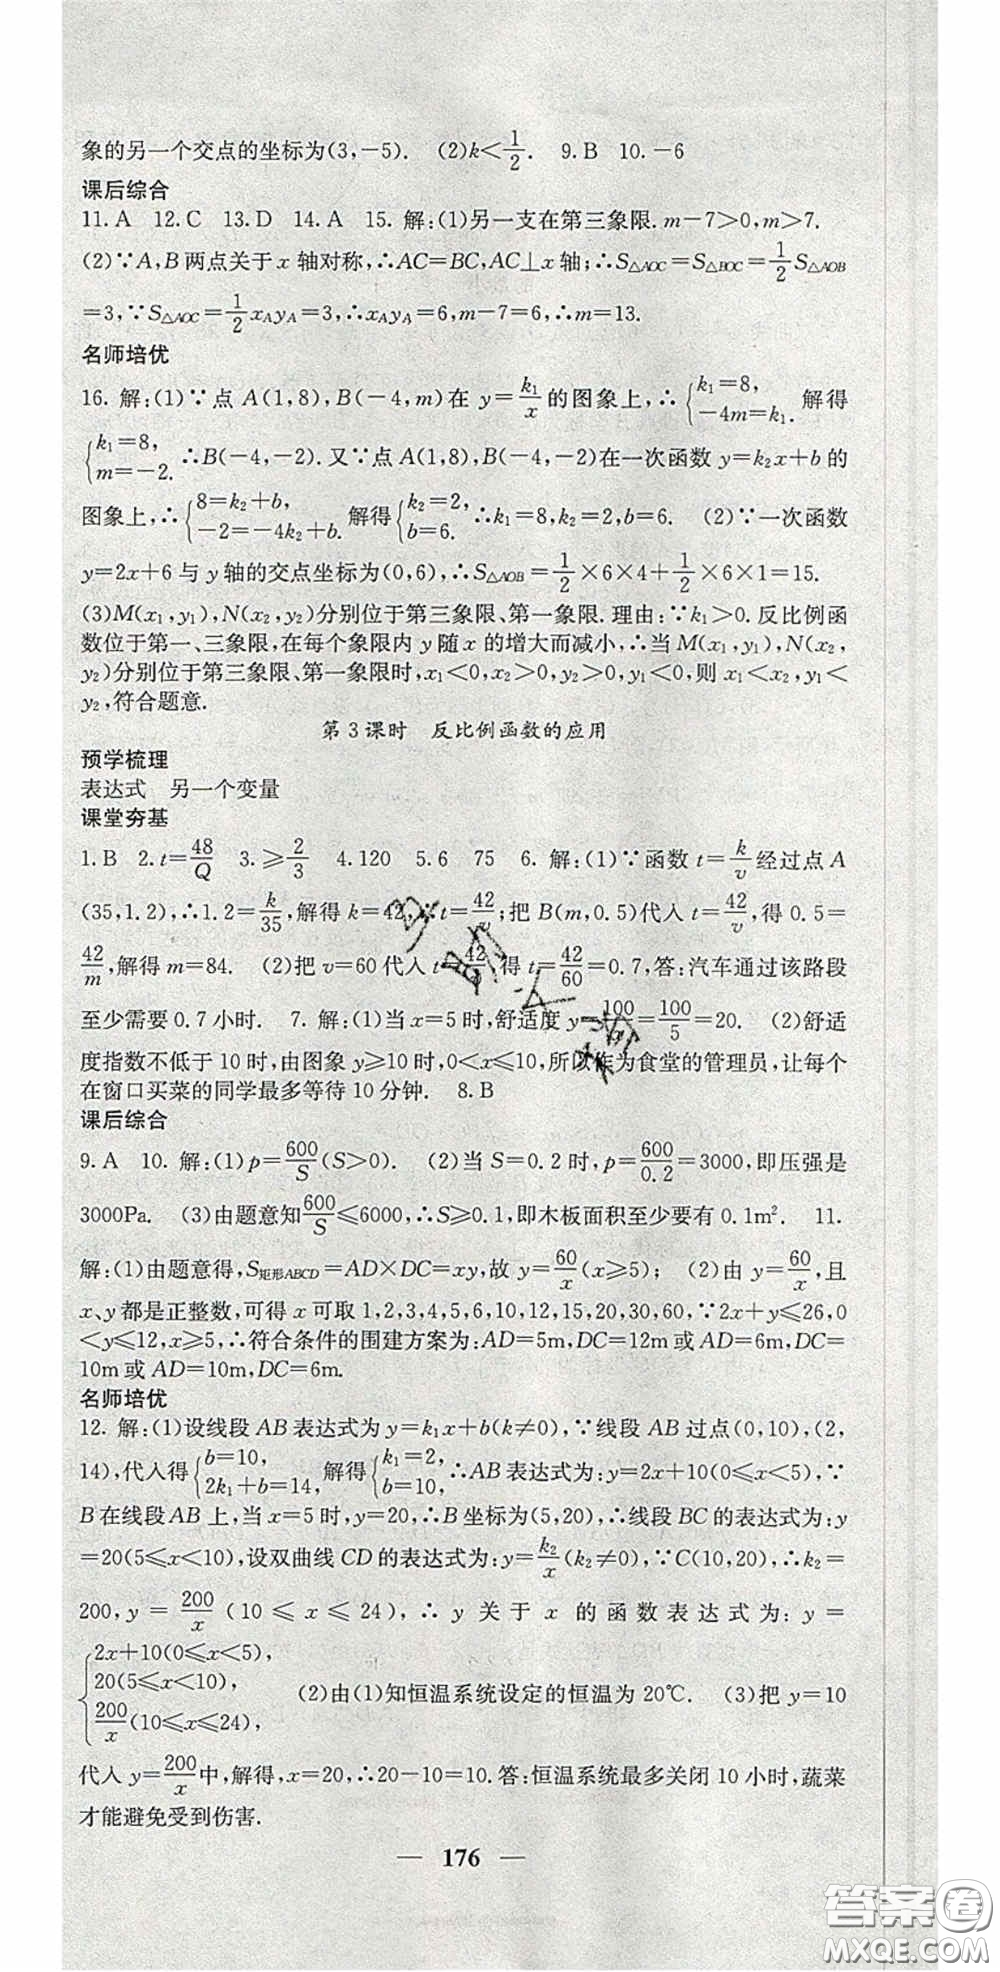 象的另一个交点的坐标为(3,-5). (2)k<1/2. 9.B 10.-6
课后综合
11.A 12.C 13.D 14.A 15.解:(1)另一支在第三象限.m-7>0,m>7.
(2)∵A,B两点关于x轴对称,∴AC=BC,AC⊥x轴;∴S△AOC=S△BOC=1/2S△AOB
=3,∵S△AOC=1/2xAyA=3,∴xAyA=6,m-7=6,∴m=13.
名师培优
16.解:(1)∵点A(1,8),B(-4,m)在y=k₁/x的图象上,∴{k₁=8, -4m=k₁. 解得
{k₁=8, m=-2. ∴B(-4,-2).又∵点A(1,8),B(-4,-2)在一次函数y=k₂x+b的
图象上,∴{8=k₂+b, -2=-4k₂+b. 解得{k₂=2, b=6. ∴k₁=8,k₂=2,b=6. (2)∵一次函数
y=2x+6与y轴的交点坐标为(0,6),∴S△AOB=1/2×6×4+1/2×6×1=15.
(3)M(x₁,y₁),N(x₂,y₂)分别位于第三象限、第一象限.理由:∵k₁>0.反比例函
数位于第一、三象限,在每个象限内y随x的增大而减小,∴当M(x₁,y₁),N(x₂,
y₂)分别位于第三象限、第一象限时,x₁<0,x₂>0,y₂>0,y₁<0,则x₁<x₂,y₁<
y₂,符合题意.
第3课时 反比例函数的应用
预学梳理
表达式 另一个变量
课堂夯基
1.B 2.t=48/Q 3.≥2/3 4.120 5.6 75 6.解:(1)∵函数t=k/v经过点A
(35,1.2),∴1.2=k/35,解得k=42,∵t=42/v;把B(m,0.5)代入t=42/v,得0.5=
42/m,解得m=84. (2)把v=60代入t=42/v,得t=42/60=0.7,答:汽车通过该路段
至少需要0.7小时. 7.解:(1)当x=5时,舒适度y=100/x=100/5=20. (2)舒适
度指数不低于10时,由图象y≥10时,0<x≤10,所以作为食堂的管理员,让每个
在窗口买菜的同学最多等待10分钟. 8.B
课后综合
9.A 10.解:(1)p=600/S(S>0). (2)当S=0.2时,p=600/0.2=3000,即压强是
3000Pa. (3)由题意知600/S≤6000,∴S≥0.1,即木板面积至少要有0.1m². 11.
解:(1)由题意得,S矩形ABCD=AD×DC=xy,故y=60/x(x≥5); (2)由y=60/x,且
x、y都是正整数,可得x可取1,2,3,4,5,6,10,12,15,20,30,60,∵2x+y≤26,0
<y≤12,x≥5,∴符合条件的围建方案为:AD=5m,DC=12m或AD=6m,DC=
10m或AD=10m,DC=6m.
名师培优
12.解:(1)设线段AB表达式为y=k₁x+b(k≠0),∵线段AB过点(0,10),(2,
14),代入得{b=10, 2k₁+b=14, 解得{k₁=2, b=10, ∴AB表达式为:y=2x+10(0≤x<5),∵
B在线段AB上,当x=5时,y=20,∴B坐标为(5,20),∴线段BC的表达式为:y
=20(5≤x<10),设双曲线CD的表达式为:y=k₂/x(k₂≠0),∵C(10,20),∴k₂=
200,y=200/x(10≤x≤24),∴y关于x的函数表达式为:y=
{2x+10(0≤x<5),
20(5≤x<10),
200/x(10≤x≤24), (2)由(1)知恒温系统设定的恒温为20℃. (3)把y=10
代入y=200/x中,解得,x=20,∴20-10=10.答:恒温系统最多关闭10小时,蔬菜
才能避免受到伤害.
— 176 —
答案圈
MXQE.COM